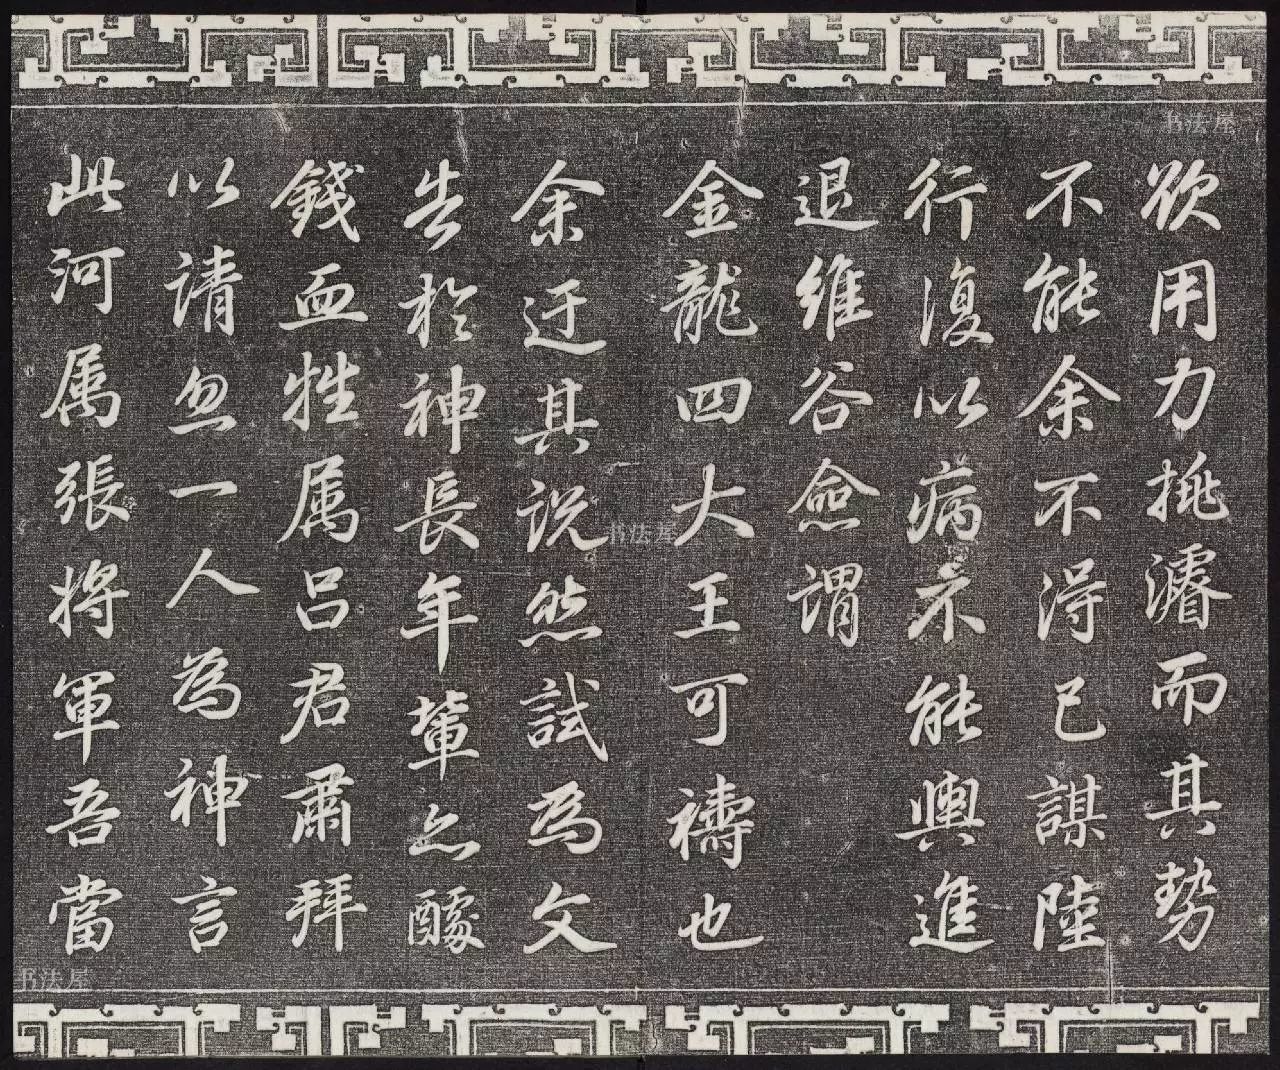 欲用力挑濬而其勢
不能余不得已謀陸
行復以病不能輿進
退維谷僉謂
金龍四大王可禱也
余迂其説然試為文
告於神長年輩亦醵
錢血牲属呂君肅拜
以請忽一人為神言
此河属張將軍吾當
书法屋
书法屋
书法屋